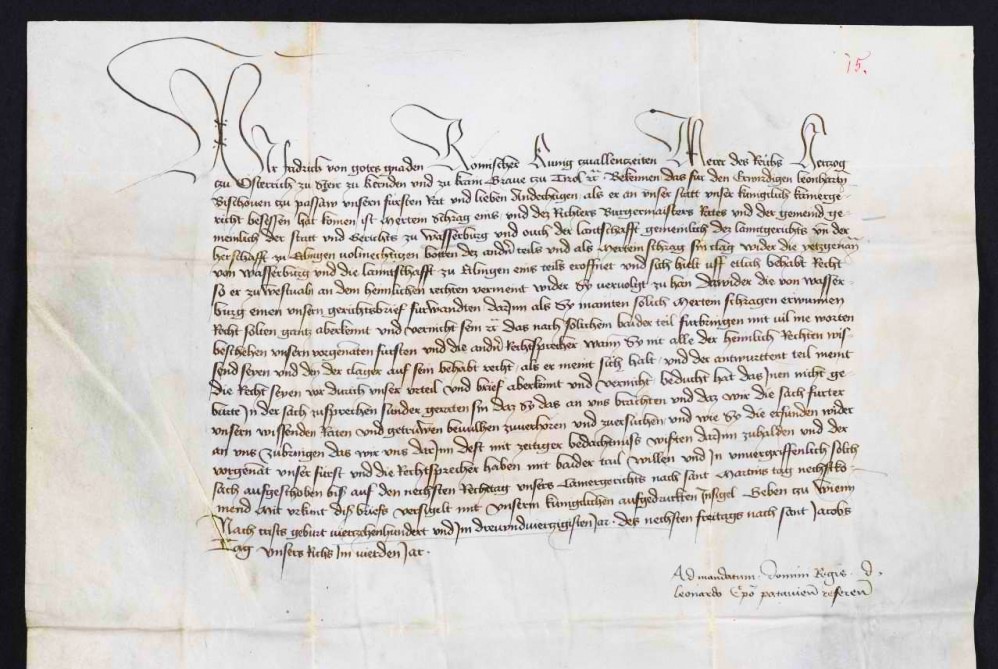 15.
Wir Fridrich von gotes gnaden Romischer Kung zuallenzeiten Merer des Reichs Hertzog
zu Osterrich zu Steir zu kernden und zu krain Grave zu Tirol etc. Bekennen das fur den Erwirdigen leonharten
Bischoven zu passaw unsern fursten Rat und lieben Andechtigen als er an unser statt unser kuniglich kamerge-
richt besessen hat komen ist Mertein Schrag eins und der Richters Burgermaisters Rates und der gemeind ge-
meinlich der statt und Gerichts zu Wasserburg und ouch der lantschafft gemeinlich des lanntgerichts und der
herschafft zu Clingen volmechtigen botten des andern teils und als Mertein schrag sin clag wider die yetzgenanten
von Wasserburg und die lanntschafft zu Clingen eins teils eroffnet und sich hielt uff etlich behabt Recht
so er zu Westvaln an den heimlichen rechten verment wider Sy ervolgt zu han dawider die von Wasser-
burg einen unsern gerichtsbrief furwandten darInn als Sy mainten solich Mertein schragen erwunnen
Recht solten gantz aberkennt und vernicht sein etc. das nach solichem baider teil furbringen mit vil me worten
beschehen unsern vorgenanten fursten und die andern Rechtsprecher wann Sy nit alle der heimlich Rechten wis-
send seyen und den der clager auf sein behabt recht als er meint sich halt und der antwurttent teil meint
die Recht seyen vor durch unser urteil und brief aberkennt und vernicht beducht hat das Inen nicht ge-
burte In der sach zusprechen sunder geraten sin daz Sy das an uns brachten und daz wir die sach furter
unsern wissenden Räten und getruwen bevulhen zuverhoren und zuersuchen und wie Sy die erfunden wider
an uns zubringen das wir uns darInn dest mit zeitiger bedachtnuss wisten darInn zuhalden und der
vorgenant unser furst und die Rechtsprecher haben mit baider teil willen und In unvergriffenlich solich
sach aufgeschoben bis auf den nechsten Rechttag unsers Camergerichts nach sant Martins tag nechstko-
mend Mit urkunt diss briefs versigelt mit unserm kuniglichen aufgedruckten Insigel Geben zu Wienn
Nach crists geburt viertzehenhundert und Im dreyundvierzigisten Jar des nechsten freitags nach sant Jacobs
Tag unsers Richs Im vierden Jar.
Ad mandatum domini Regis d.
leonardo Episcopo patavien referen